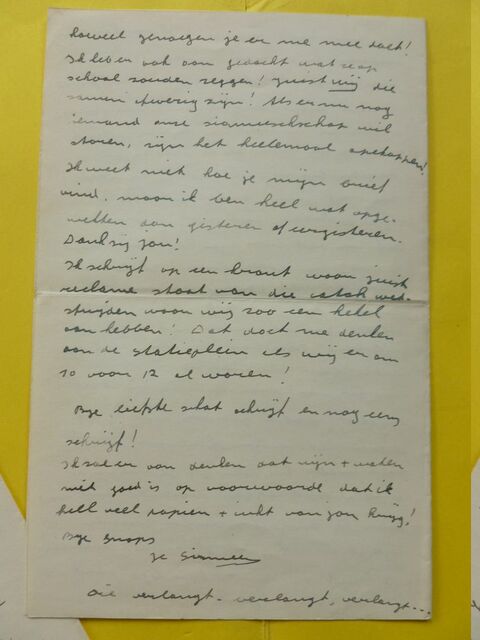 hoeveel genoegen je er me mee doet!
Ik heb er ook aan gedacht wat ze op
school zouden zeggen! Juist wij die
samen afwezig zijn! Als er nu nog
iemand onze siameeschschap wil
storen, zijn het heelemaal
Ik weet niet hoe je mijn brief
vind, maar ik ben heel wat opge-
wekter dan gisteren of eergisteren.
Dank zij jou!
Ik schrijf op een krant waar juist
reclame staat van die catch wed-
strijden waar wij zoo een hekel
aan hebben! Dat doet me denken
aan de statieplein als wij er om
10 voor 12 al waren!
Bye liefste schat schrijf en nog eens
schrijf!
Ik zal er aan denken dat wijn + water
niet goed is op voorwaarde dat ik
heel veel papier + inkt van jou krijg!
Bye Snops
Je Siamees
Die verlangt, verlangt, verlangt...